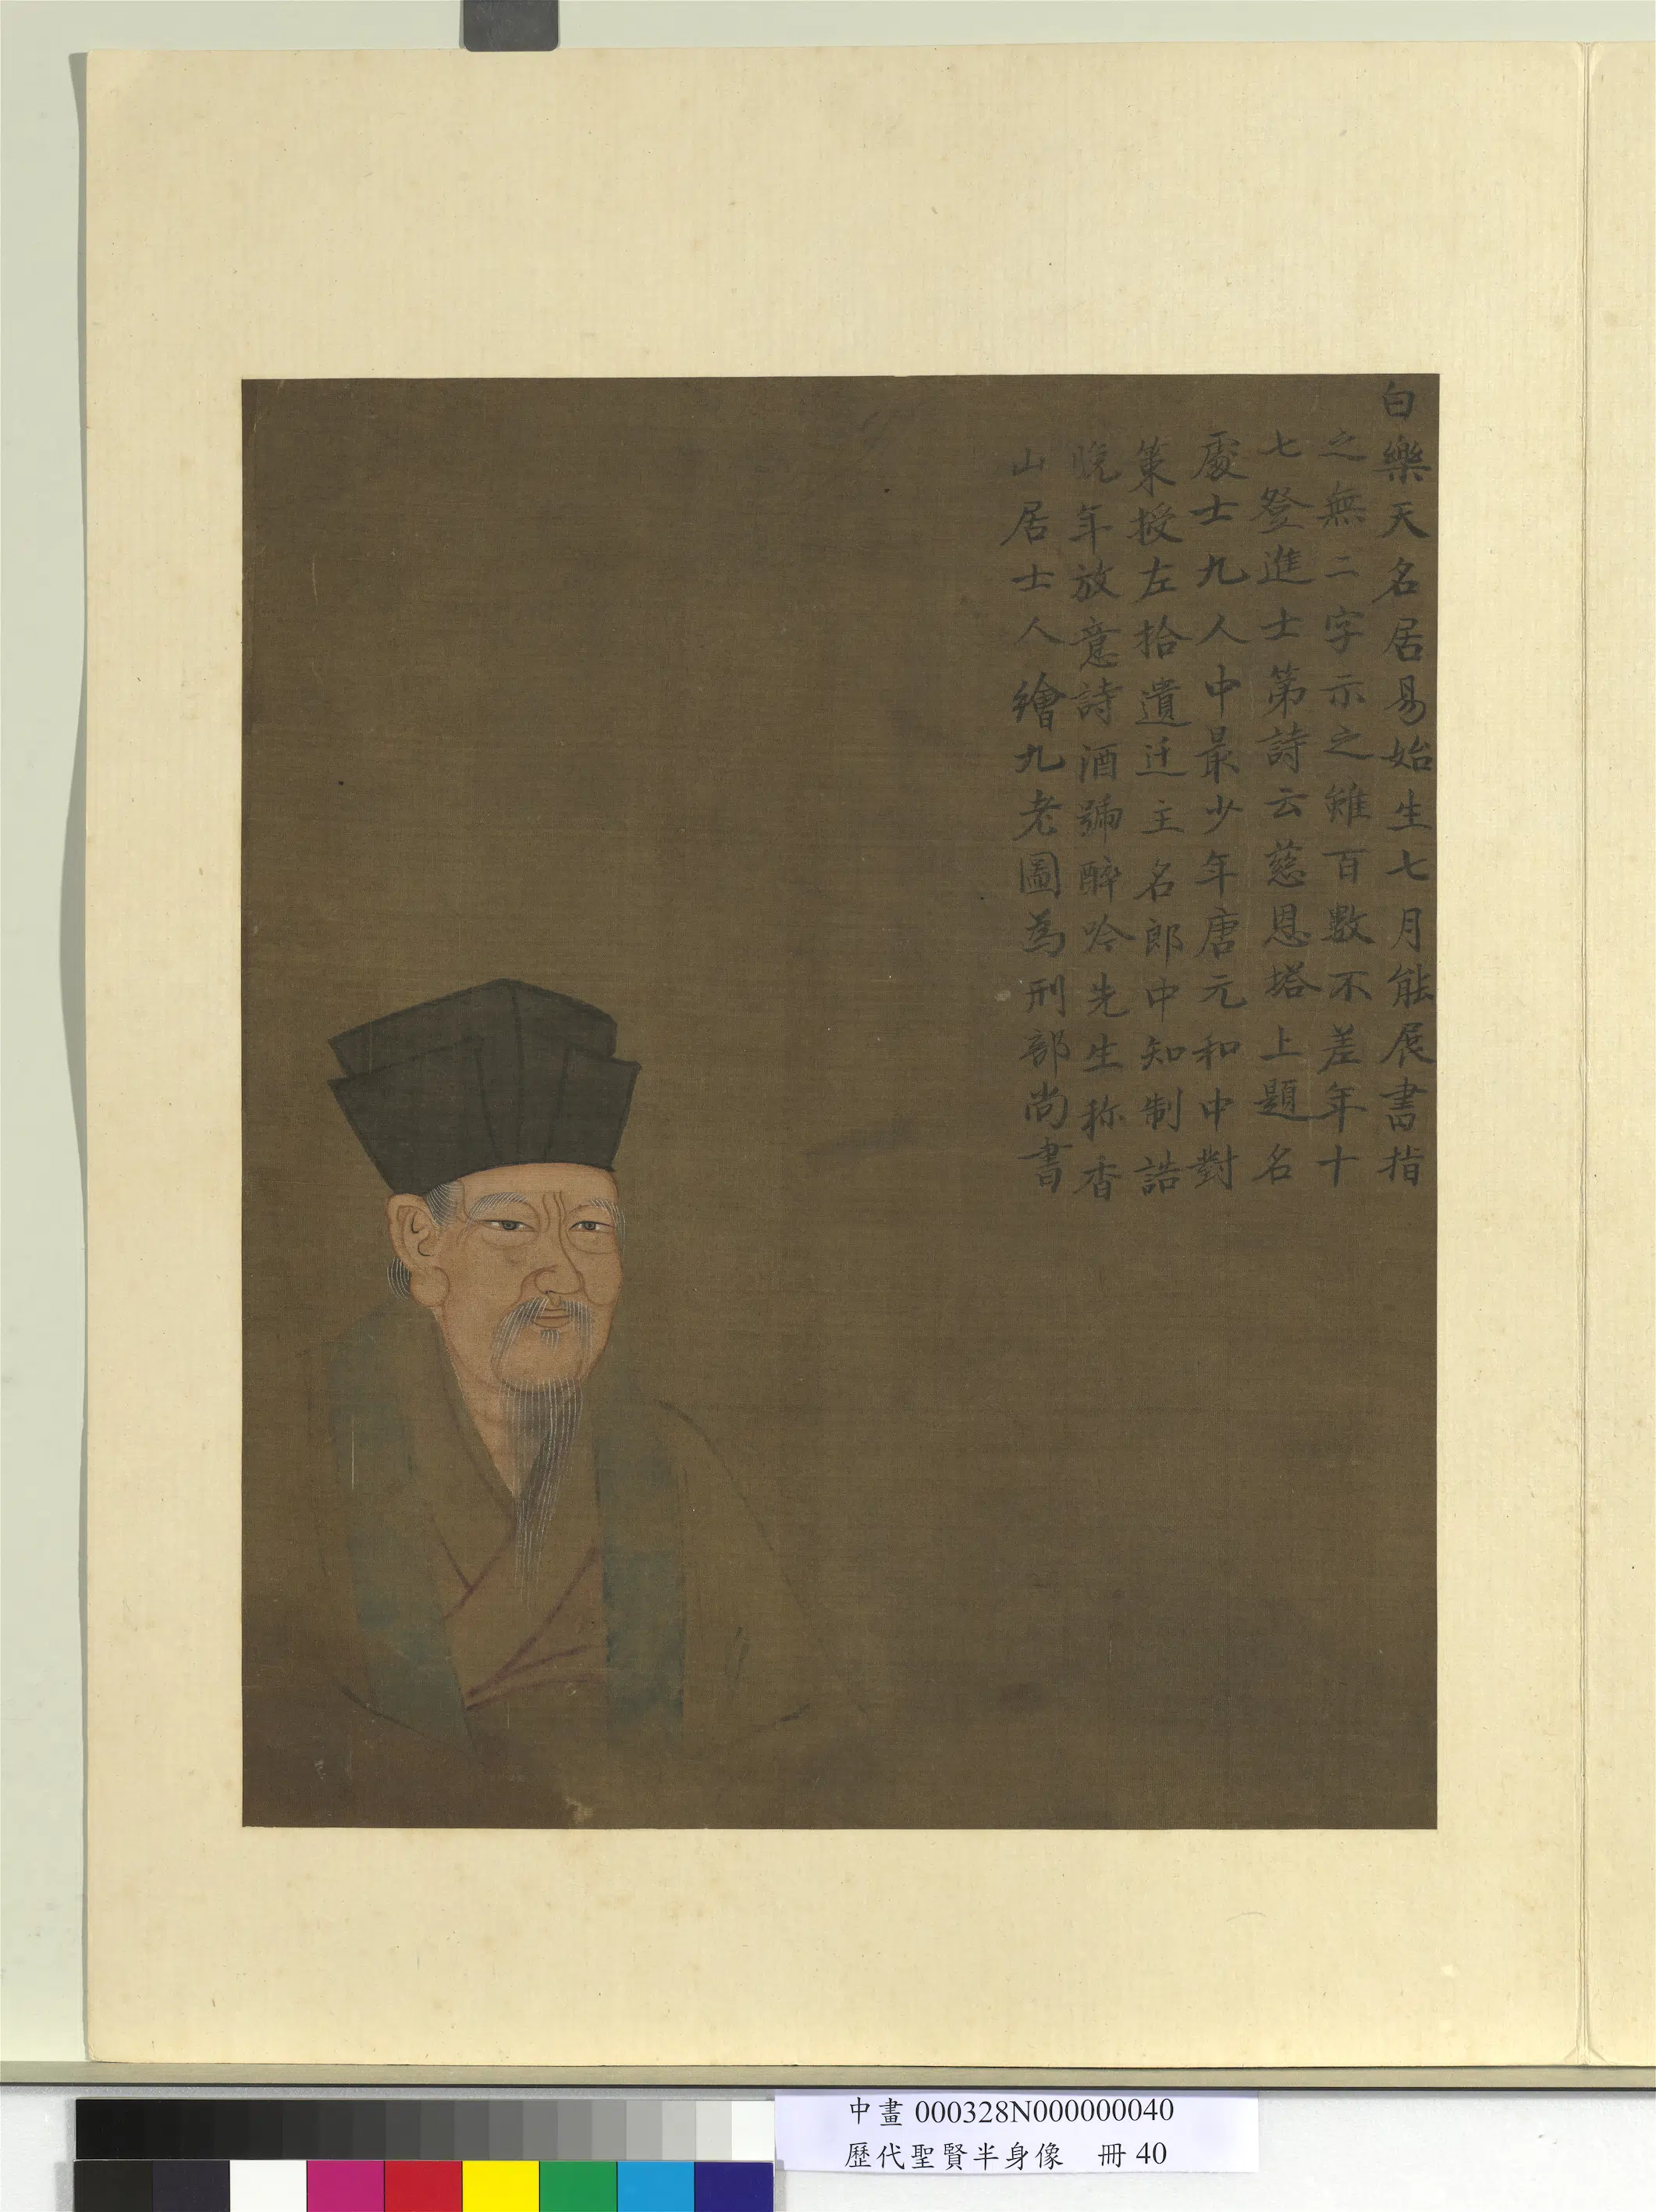 白樂天名居易始生七月能展書指
之無二字示之雖百數不差年十
七登進士第詩云慈恩塔上題名
處士九人中最少年唐元和中對
策授左拾遺迁主名郎中知制誥
晚年放意詩酒號醉吟先生称香
山居士人繪九老圖為刑部尚書
中畫 000328N000000040
歷代聖賢半身像 冊 40